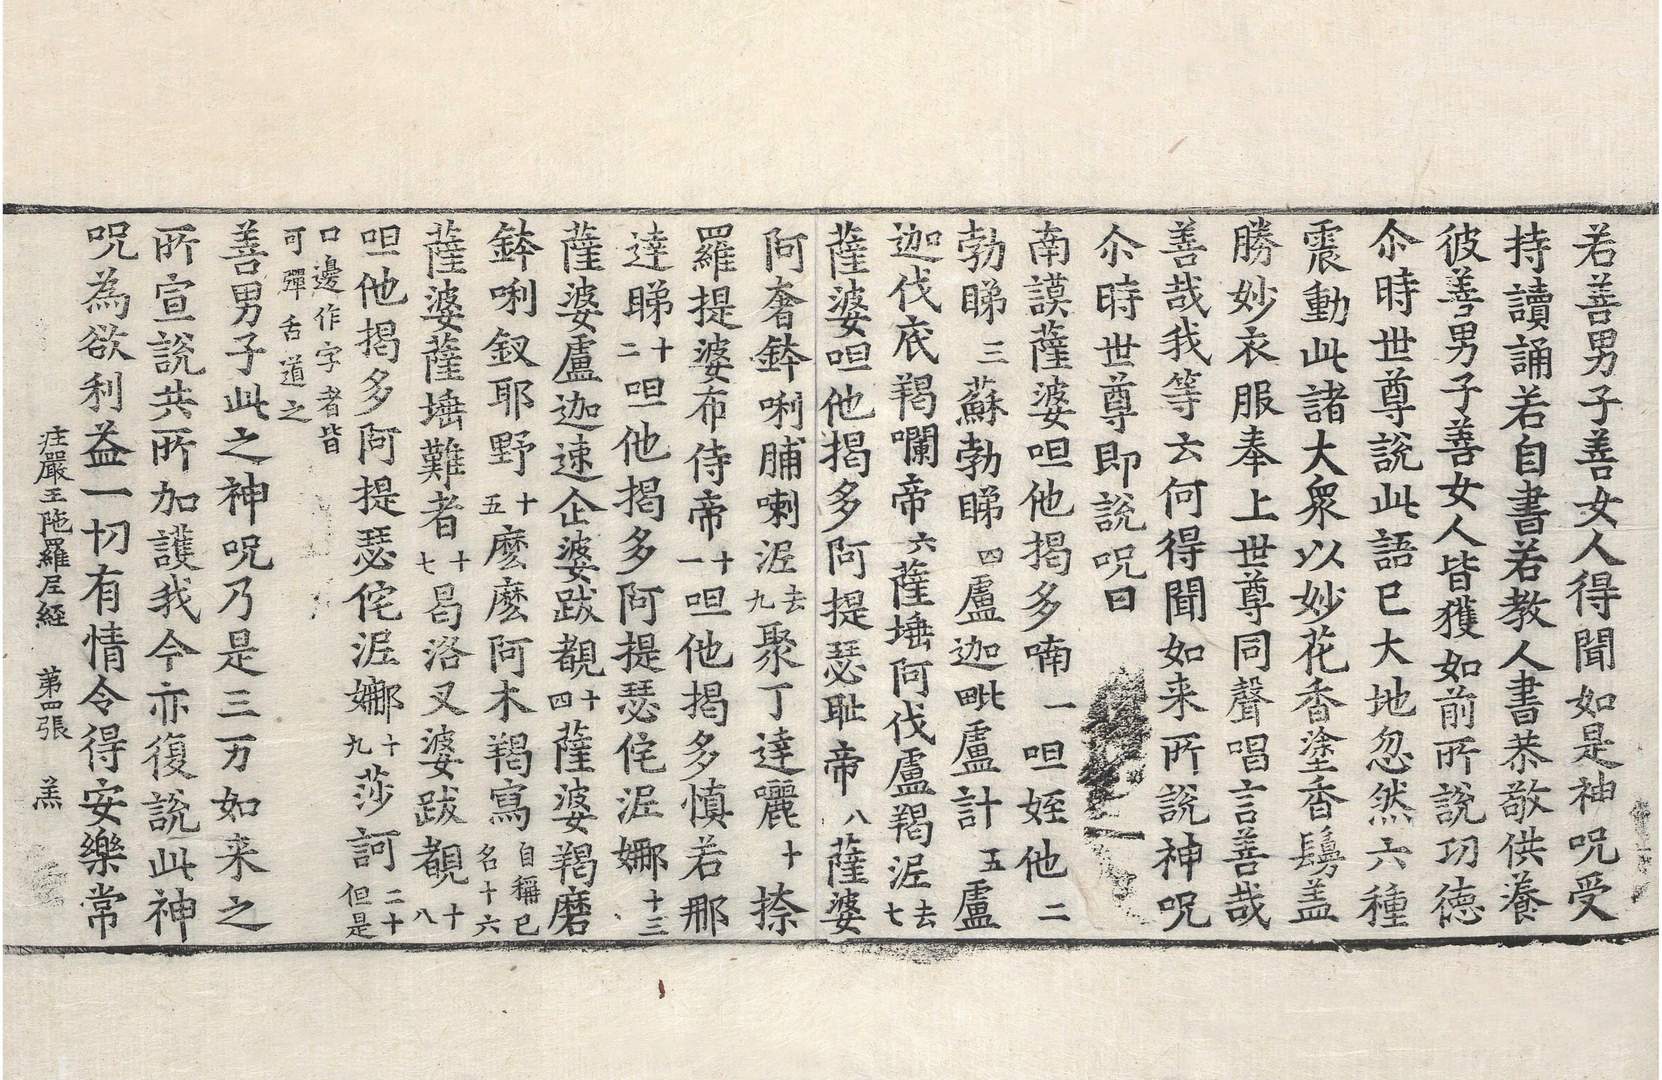 若善男子善女人得聞如是神呪受
持讀誦若自書若教人書恭敬供養
彼善男子善女人皆獲如前所說功德
尒時世尊說此語已大地忽然六種
震動此諸大衆以妙花香塗香鬘盖
勝妙衣服奉上世尊同聲唱言善哉
善哉我等云何得聞如来所說神呪
尒時世尊即說呪曰
南謨薩婆呾他揭多喃一呾姪他二
勃睇三蘇勃睇四盧迦毗盧計五盧
迦伐底羯囒帝六薩埵阿伐盧羯泥去七
薩婆呾他揭多阿提瑟耻帝八薩婆
阿奢鉢唎脯喇泥去九聚丁達囇十捺
羅提婆布侍帝十一呾他揭多慎若那
達睇十二呾他揭多阿提瑟侘泥娜十三
薩婆盧迦速企婆跋覩十四薩婆羯磨
鉢唎釵耶野十五麽麽阿木羯寫自稱已名十六
薩婆薩埵難者十七曷洛叉婆跋覩十八
呾他揭多阿提瑟侘泥娜十九莎訶二十但是
口邊作字者皆可彈舌道之
善男子此之神呪乃是三万如来之
所宣說共所加護我今亦復說此神
呪為欲利益一切有情令得安樂常
庄嚴王陁羅尼經 第四張 羔